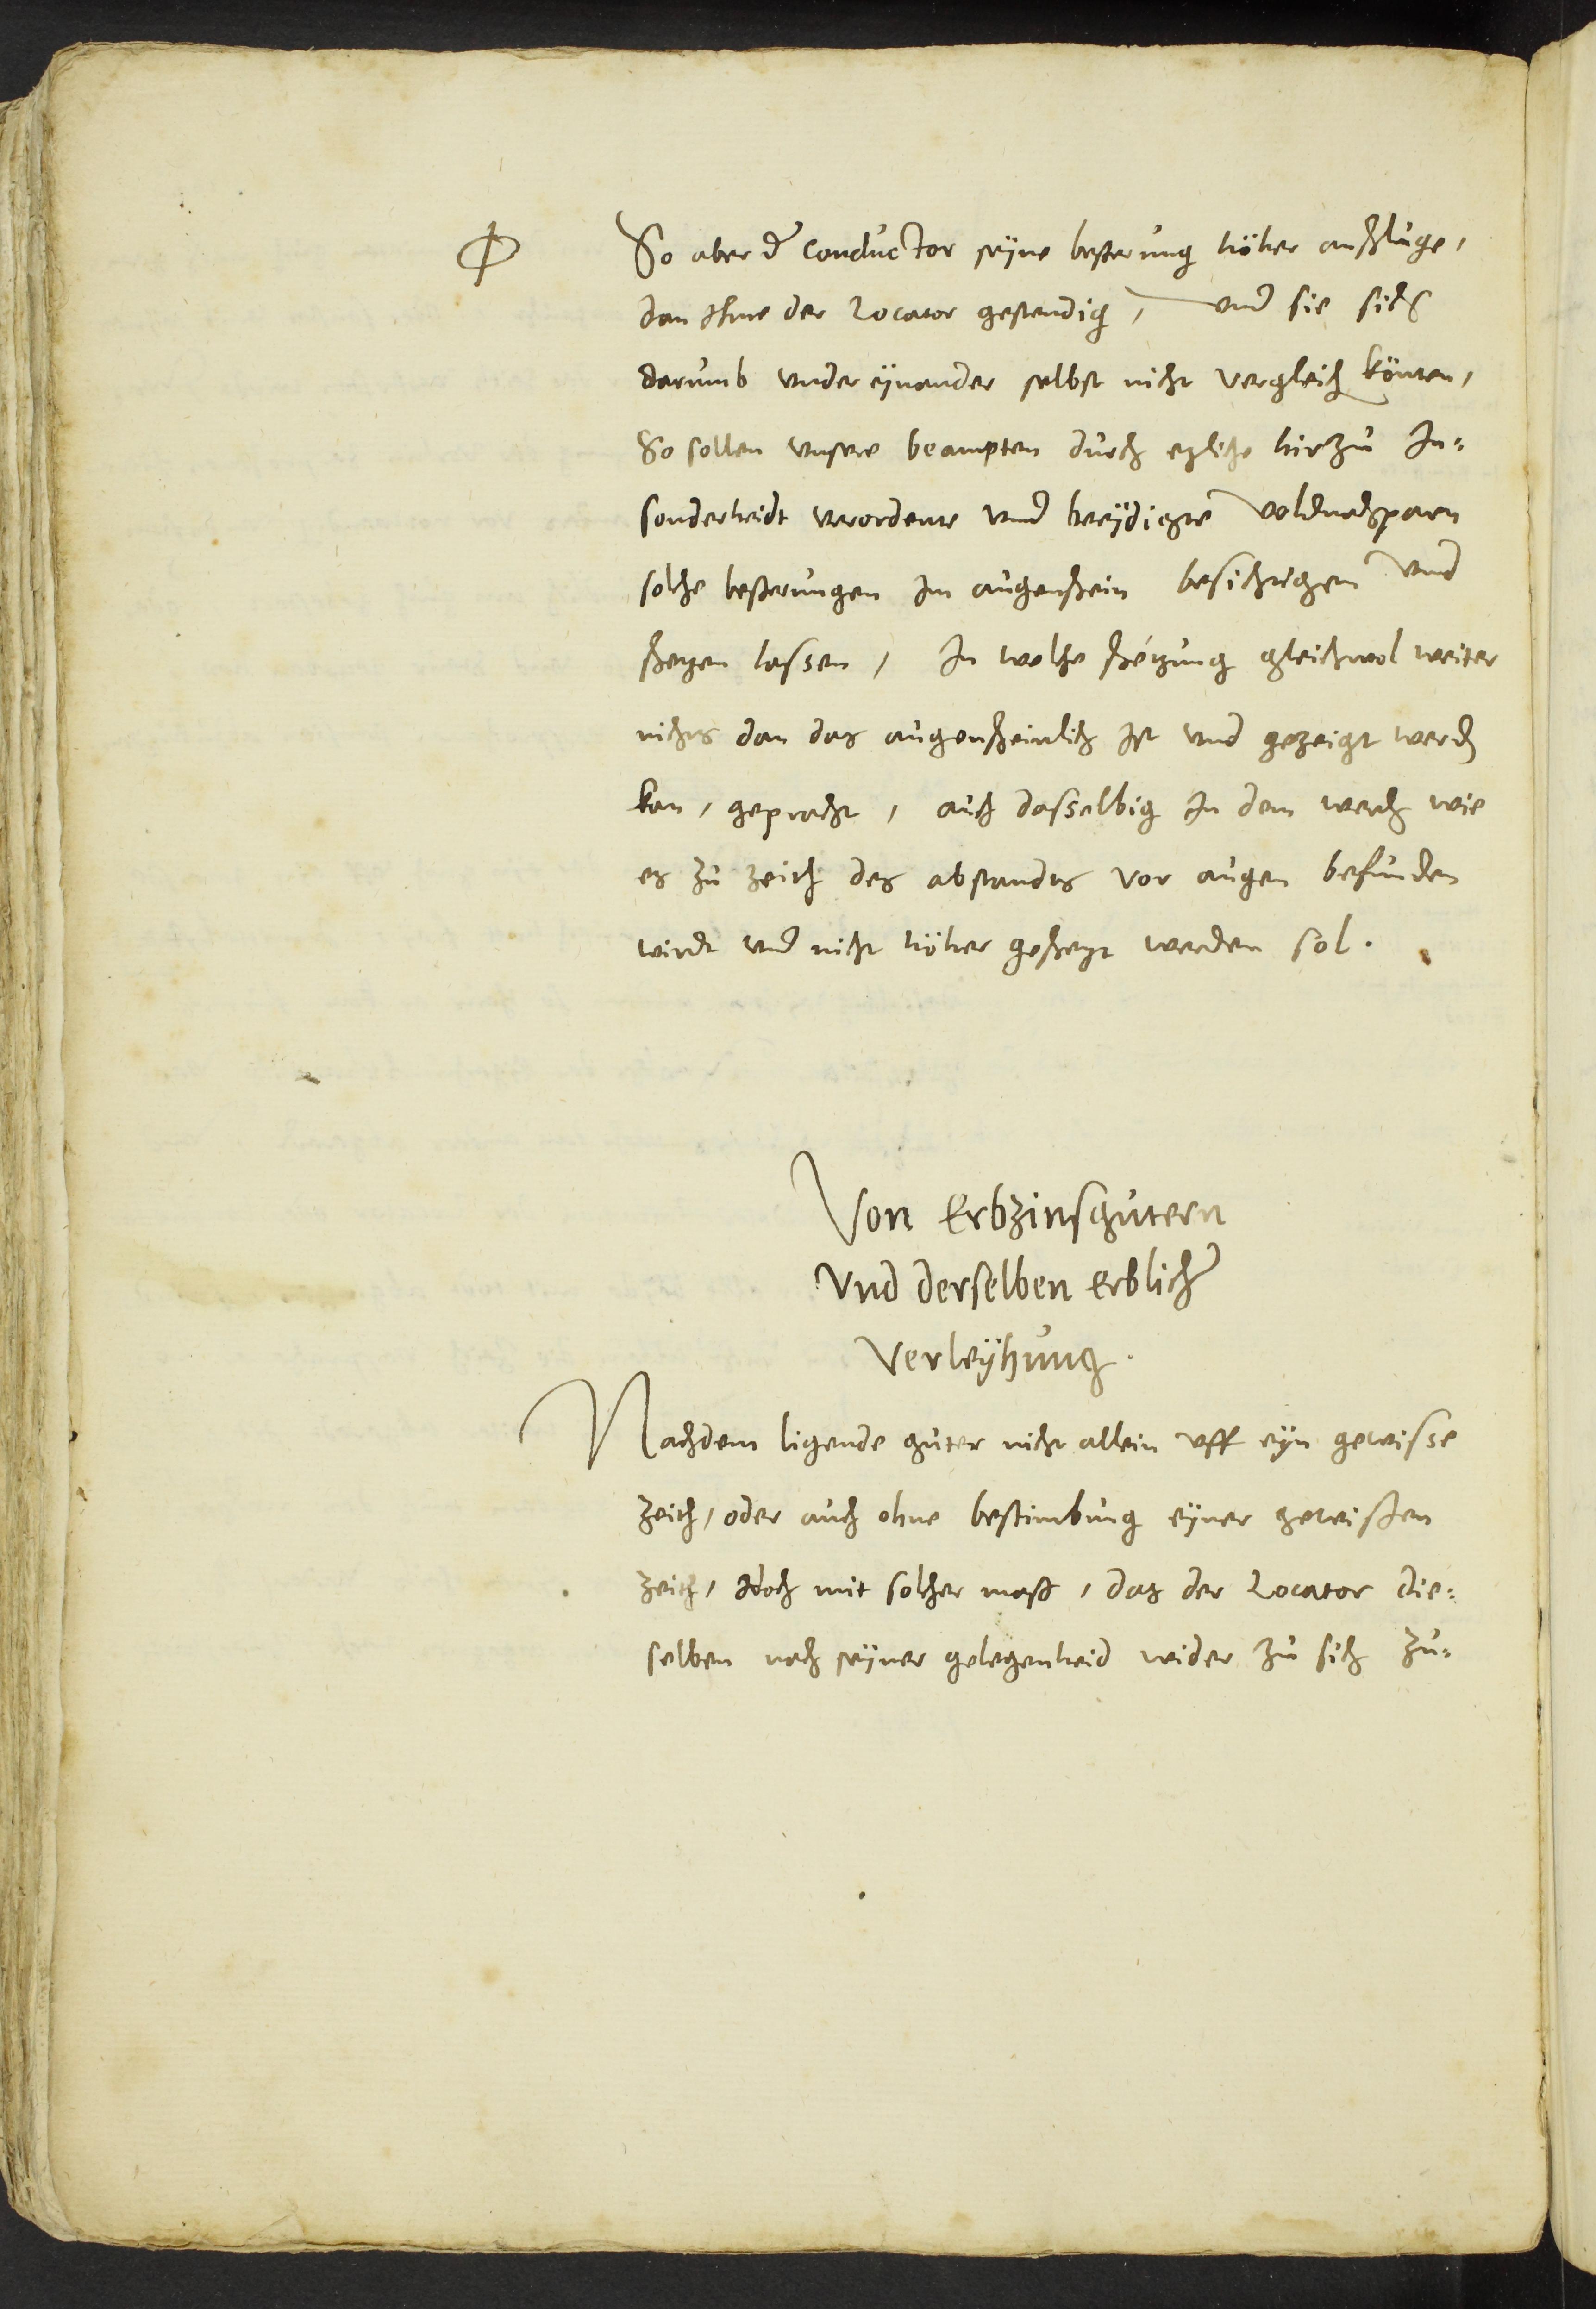 So aber d' Conductor seyne besserung höher anschluge,
dan Ihme der Locator gestendig, vnd sie sich
darumb vnder eynander selbst nicht vergleich könten,
So sollen vnsere beampten durch etzliche hirzu In=
sonderheidt verordente vnd beeydigte
solche besserungen Im augenschein besichtigen vnd
schetzen lassen, In welche schetzung gleichwol weiter
nichts dan das augenscheinlich Ist vnd gezeigt werd
kan, gepracht, auch dasselbig In dem werth wie
es zu zeith des abstandts vor augen befunden
wirdt vnd nicht höher geschetzt werden sol.
Von Erbzinsgutern
Vnd derselben Erblich'
Verleyhung.
Nachdem ligende guter nicht allein vff eyn gewisse
zeith, oder auch ohne bestimbung eyner gewissen
zeith, Idoch mit solcher mass, das der Locator die=
selben nach seyner gelegenheid wider zu sich zu=